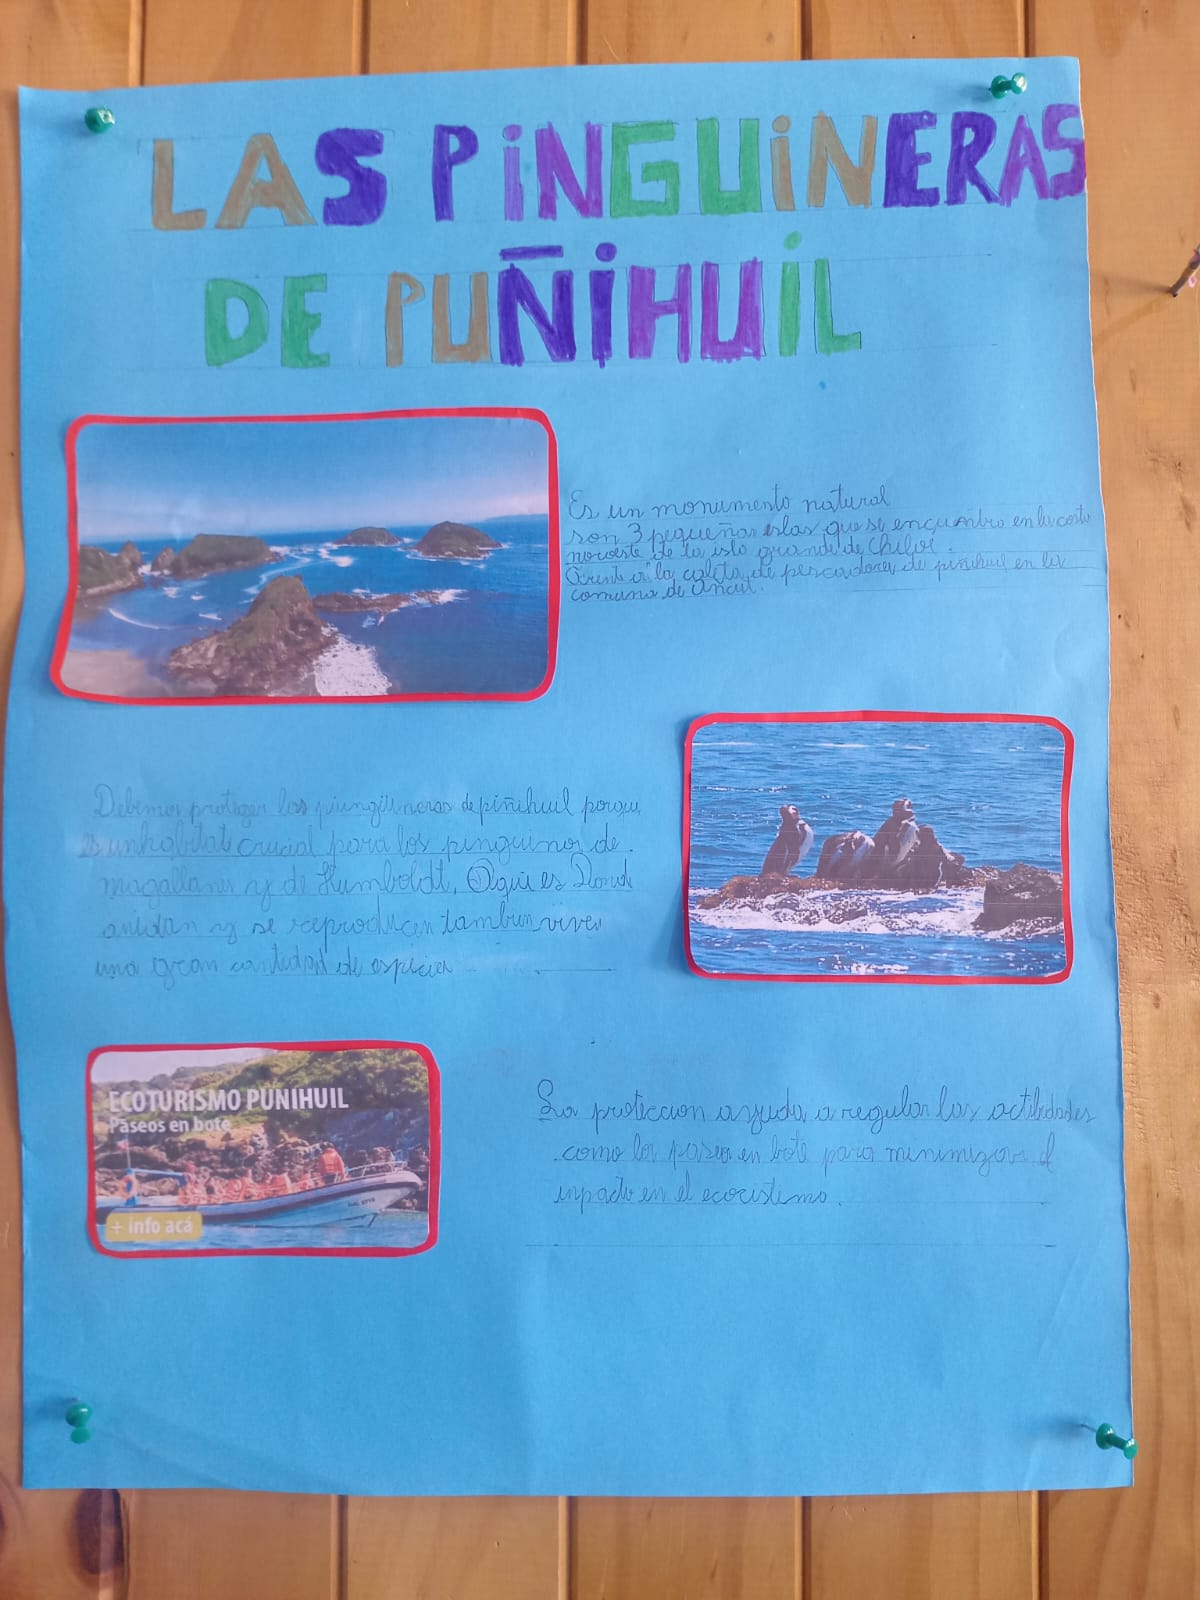 LAS PiNGUiNERAS
DE PUÑiHUiL
Es un monumento natural
son 3 pequeñas islas que se encuentra en la costa
noroeste de la isla grande de Chiloé.
frente a la caleta de pescadores de piñihuil en la
comuna de Ancud.
Debemos proteger las piungüineras de piñihuil porque
es unhabitat crucial para los pinguinos de
magallanes y de Humboldt, Aqui es Donde
anidan y se reproducen tambien viven
una gran cantidad de especies
ECOTURISMO PUÑIHUIL
Paseos en bote
+ info acá
La proteccion ayuda a regular las actibidades
como los paseos en bote para minimizar el
inpacto en el ecocistema.